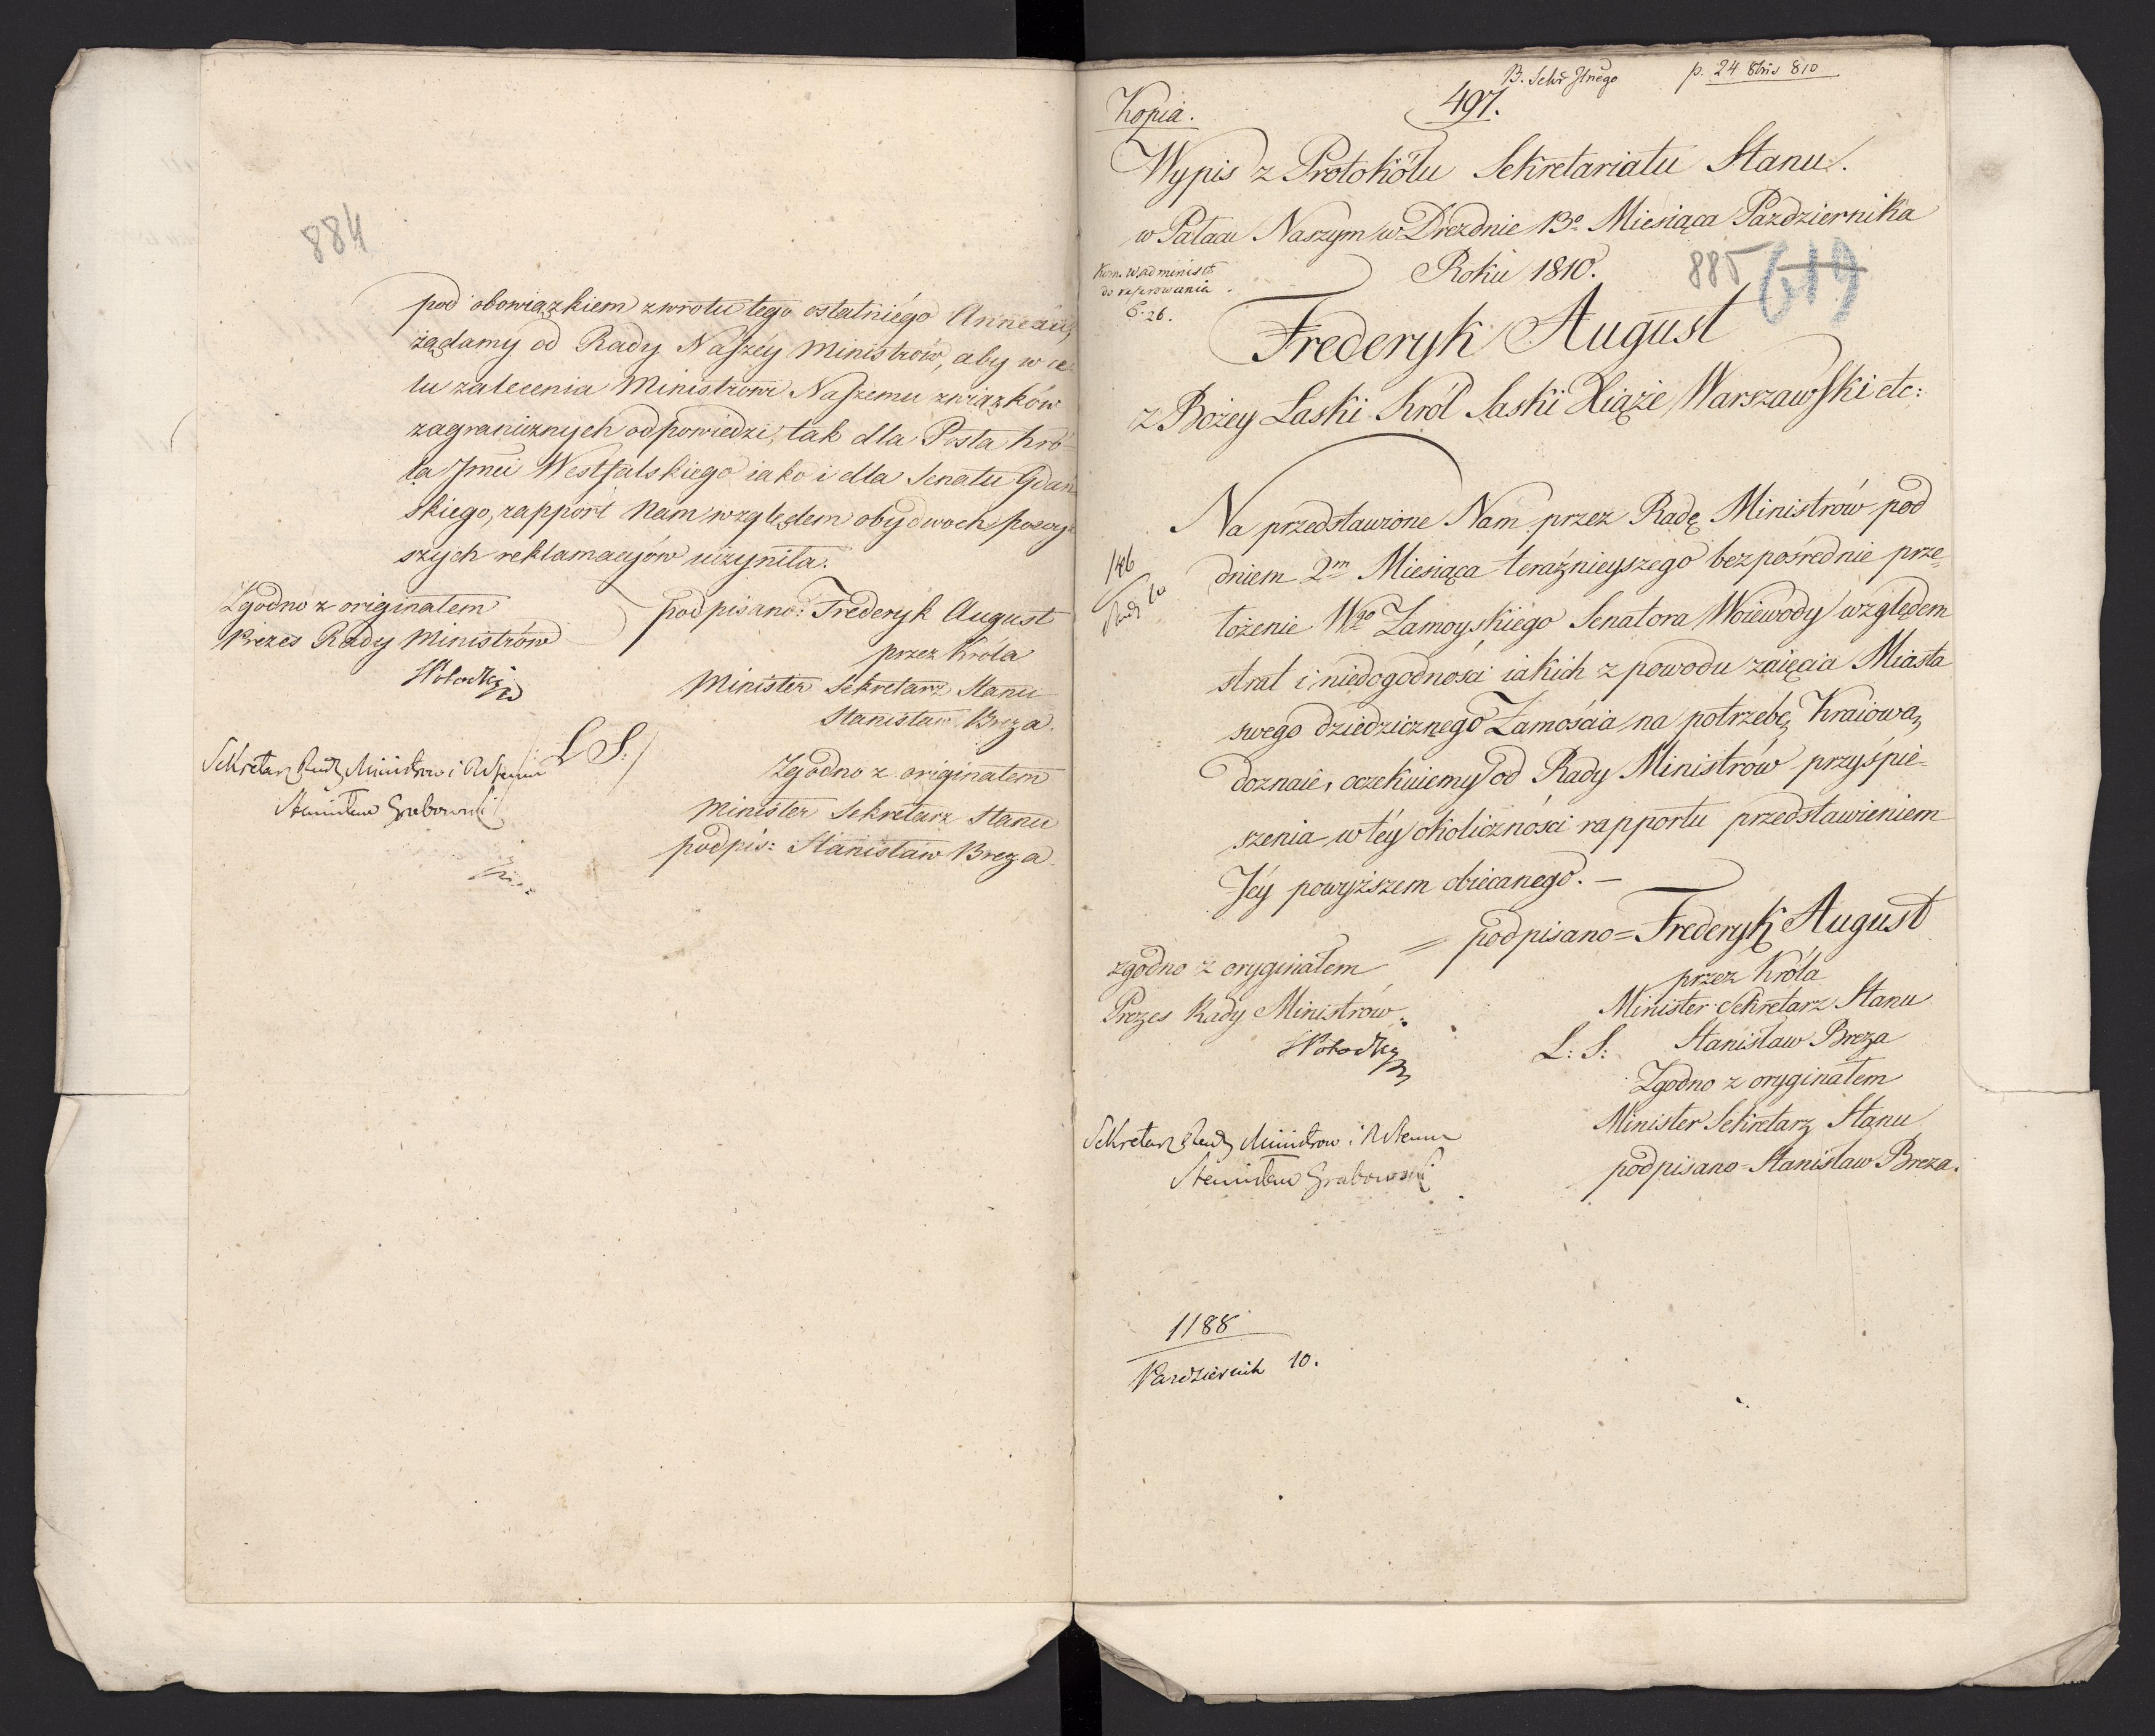 884
pod obowiązkiem zwrotu tego ostatniégo Anneau,
żądamy od Rady Naszéy Ministrów, aby w ce-
lu zalecenia Ministrowi Naszemu związków
zagranicznych odpowiedzi, tak dla Posła Kró-
la Jmci Westfalskiego iako i dla Senatu Gdań
skiego, rapport Nam względem obydwoch powyż
szych reklamacyów uczyniła.
Zgodno z originałem
Prezes Rady Ministrów
podpisano: Frederyk August
przez Króla
Minister Sekretarz Stanu
Stanisław Breza.
/: L S :/
Sekretarz Rady Ministrow i R Stanu
Stanisław Grabowski
Zgodno z originałem
Minister Sekretarz Stanu
podpis: Stanisław Breza.
p. 24 8bris 810
Kopia.
497.
Wypis z Protokółu Sekretariatu Stanu.
w Pałacu Naszym w Dreznie 13o Miesiąca Pazdziernika
Roku 1810.
885
do
6. 26.
Frederyk August
z Bożey Laski Krol Saski Xiąże Warszawski etc:
Na przedstawione Nam przez Radę Ministrów pod
dniem 2m Miesiąca teraźnieyszego bezpośrednie prze-
łożenie Wgo Zamoyskiégo Senatora Woiewody względem
strat i niedogodności iakich z powodu zaięcia Miasta
swego dziedzicznego Zamościa na potrzebę Kraiową
doznaie, oczekuiemy od Rady Ministrów przyśpie-
szenia w téy okoliczności rapportu przedstawieniem
Jéy powyższem obiecanego. —
146
= podpisano = Frederyk August
zgodno z oryginałem
Prezes Rady Ministrów
przez Króla
Minister Sekretarz Stanu
L: S: Stanisław Breza
Zgodno z oryginałem
Minister Sekretarz Stanu
podpisano = Stanisław Breza.
Sekretarz Rady Ministrow i R Stanu
Stanisław Grabowski
1188
Pazdziernik 10.